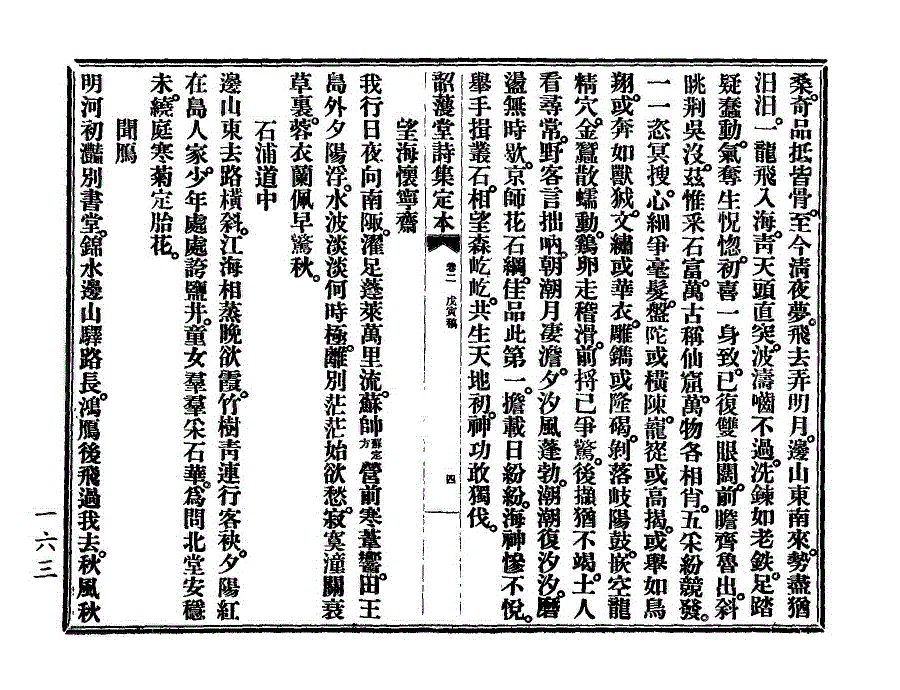 桑。奇品抵皆骨。至今清夜夢。飛去弄明月。邊山東南來。勢盡猶
汨汨。一龍飛入海。靑天頭直突。波濤嚙不過。洗鍊如老鉄。足踏
疑蠢動。氣奪生怳惚。初喜一身致。已復雙眼闊。前瞻齊魯出。斜
眺荆吳沒。玆惟采石富。萬古稱仙窟。萬物各相肖。五采紛競發。
一一恣冥搜。心細爭毫髮。盤陀或橫陳。龍嵸或高揭。或舉如鳥
翔。或奔如獸狘。文繡或華衣。雕鐫或隆碣。剝落岐陽鼓。嵌空龍
精穴。金蠶散蠕動。鷄卵走稽滑。前捋已爭驚。後擷猶不竭。土人
看尋常。野客言拙吶。朝潮月凄澹。夕汐風蓬勃。潮潮復汐汐。磨
盪無時歇。京師花石綱。佳品此第一。擔載日紛紛。海神慘不悅。
舉手揖叢石。相望森屹屹。共生天地初。神功敢獨伐。
韶濩堂詩集定本 卷二 戊寅稿 四
望海懷寧齋
我行日夜向南陬。濯足蓬萊萬里流。蘇帥蘇定方營前寒葦響。田王
島外夕陽浮。水波淡淡何時極。離別茫茫始欲愁。寂寞潼關衰
草裏。蓉衣蘭佩早驚秋。
石浦道中
邊山東去路橫斜。江海相蒸晚欲霞。竹樹靑連行客袂。夕陽紅
在島人家。少年處處誇鹽井。童女羣羣采石華。爲問北堂安穩
未。繞庭寒菊定胎花。
聞鴈
明河初灩別書堂。錦水邊山驛路長。鴻鴈後飛過我去。秋風秋
一六三